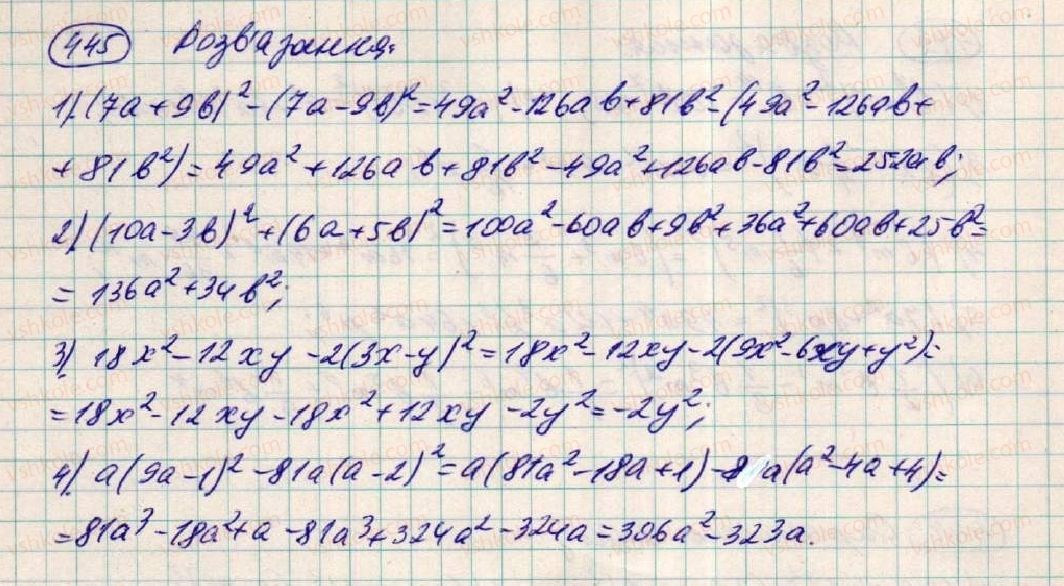 445 Розв'язання:
1) (7a+9b)²-(7a-9b)²=49a²-126ab+81b²-(49a²-126ab+
+81b²)=49a²+126ab+81b²-49a²+126ab-81b²=252ab;
2) (10a-3b)²+(6a+5b)²=100a²-60ab+9b²+36a²+60ab+25b²=
=136a²+34b²;
3) 18x²-12xy-2(3x-y)²=18x²-12xy-2(9x²-6xy+y²)=
=18x²-12xy-18x²+12xy-2y²=-2y²;
4) a(9a-1)²-81a(a-2)²=a(81a²-18a+1)-8 a(a²-4a+4)=
=81a³-18a²+a-81a³+324a²-324a=306a²-323a.